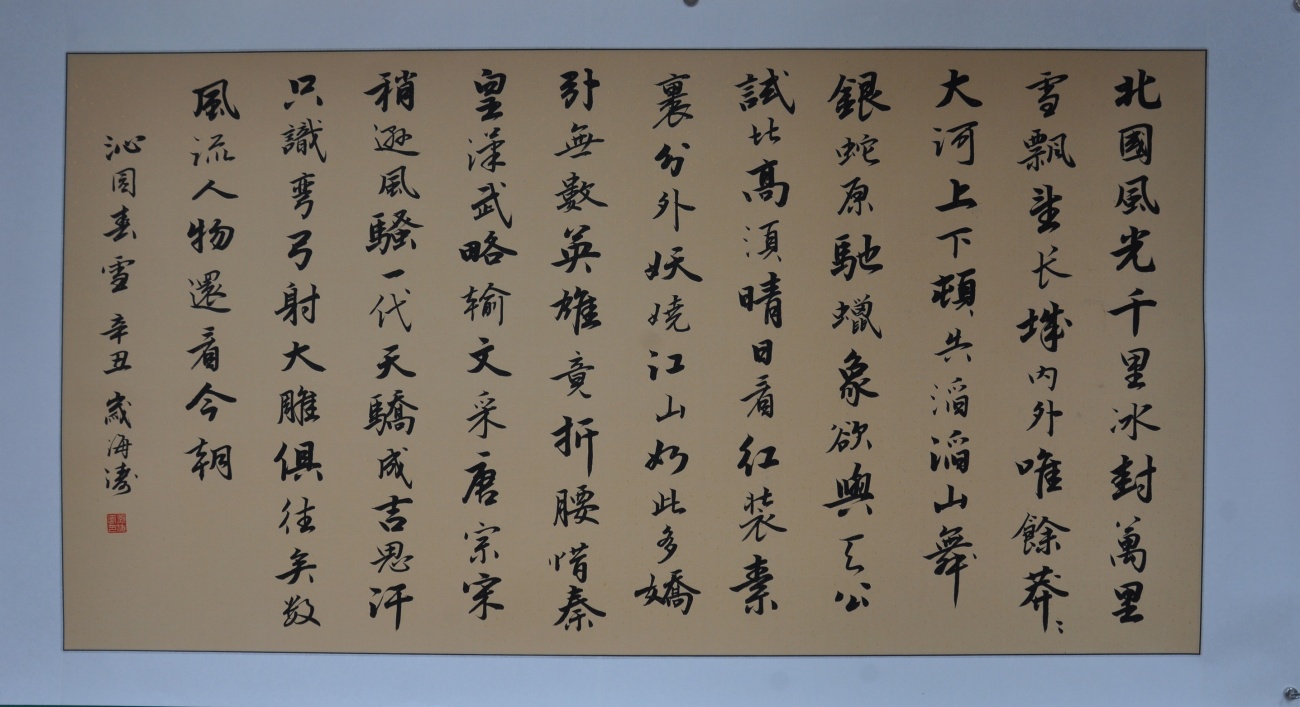 北國風光千里冰封萬里
雪飄望长城内外唯餘莽〻
大河上下頓失滔滔山舞
銀蛇原馳蠟象欲與天公
試比高須晴日看红装素
裹分外妖嬈江山如此多嬌
引無數英雄竟折腰惜秦
皇漢武略输文采唐宗宋
稍遜風騷一代天驕成吉思汗
只識彎弓射大雕俱往矣数
風流人物還看今朝
沁园春雪 辛丑歲海濤